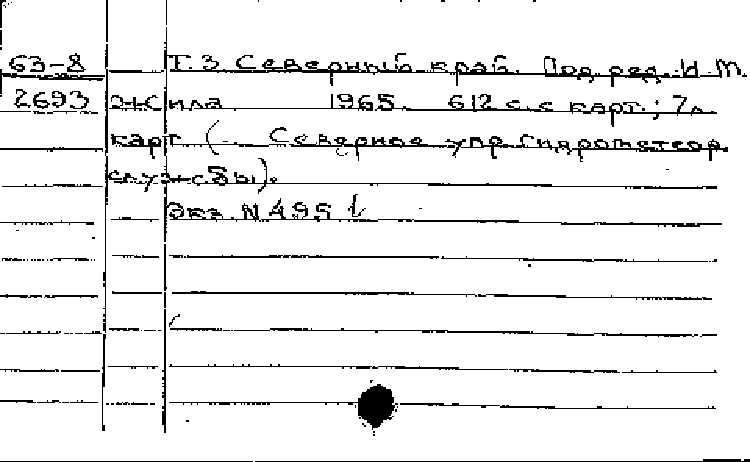 63-8 Т.3 Северный край. Под ред. И.М.
2693 Жила 1965. 612 с. с карт.; 7 л.
карт (Северное упр. Гидрометеор.
службы).
Экз. N 495